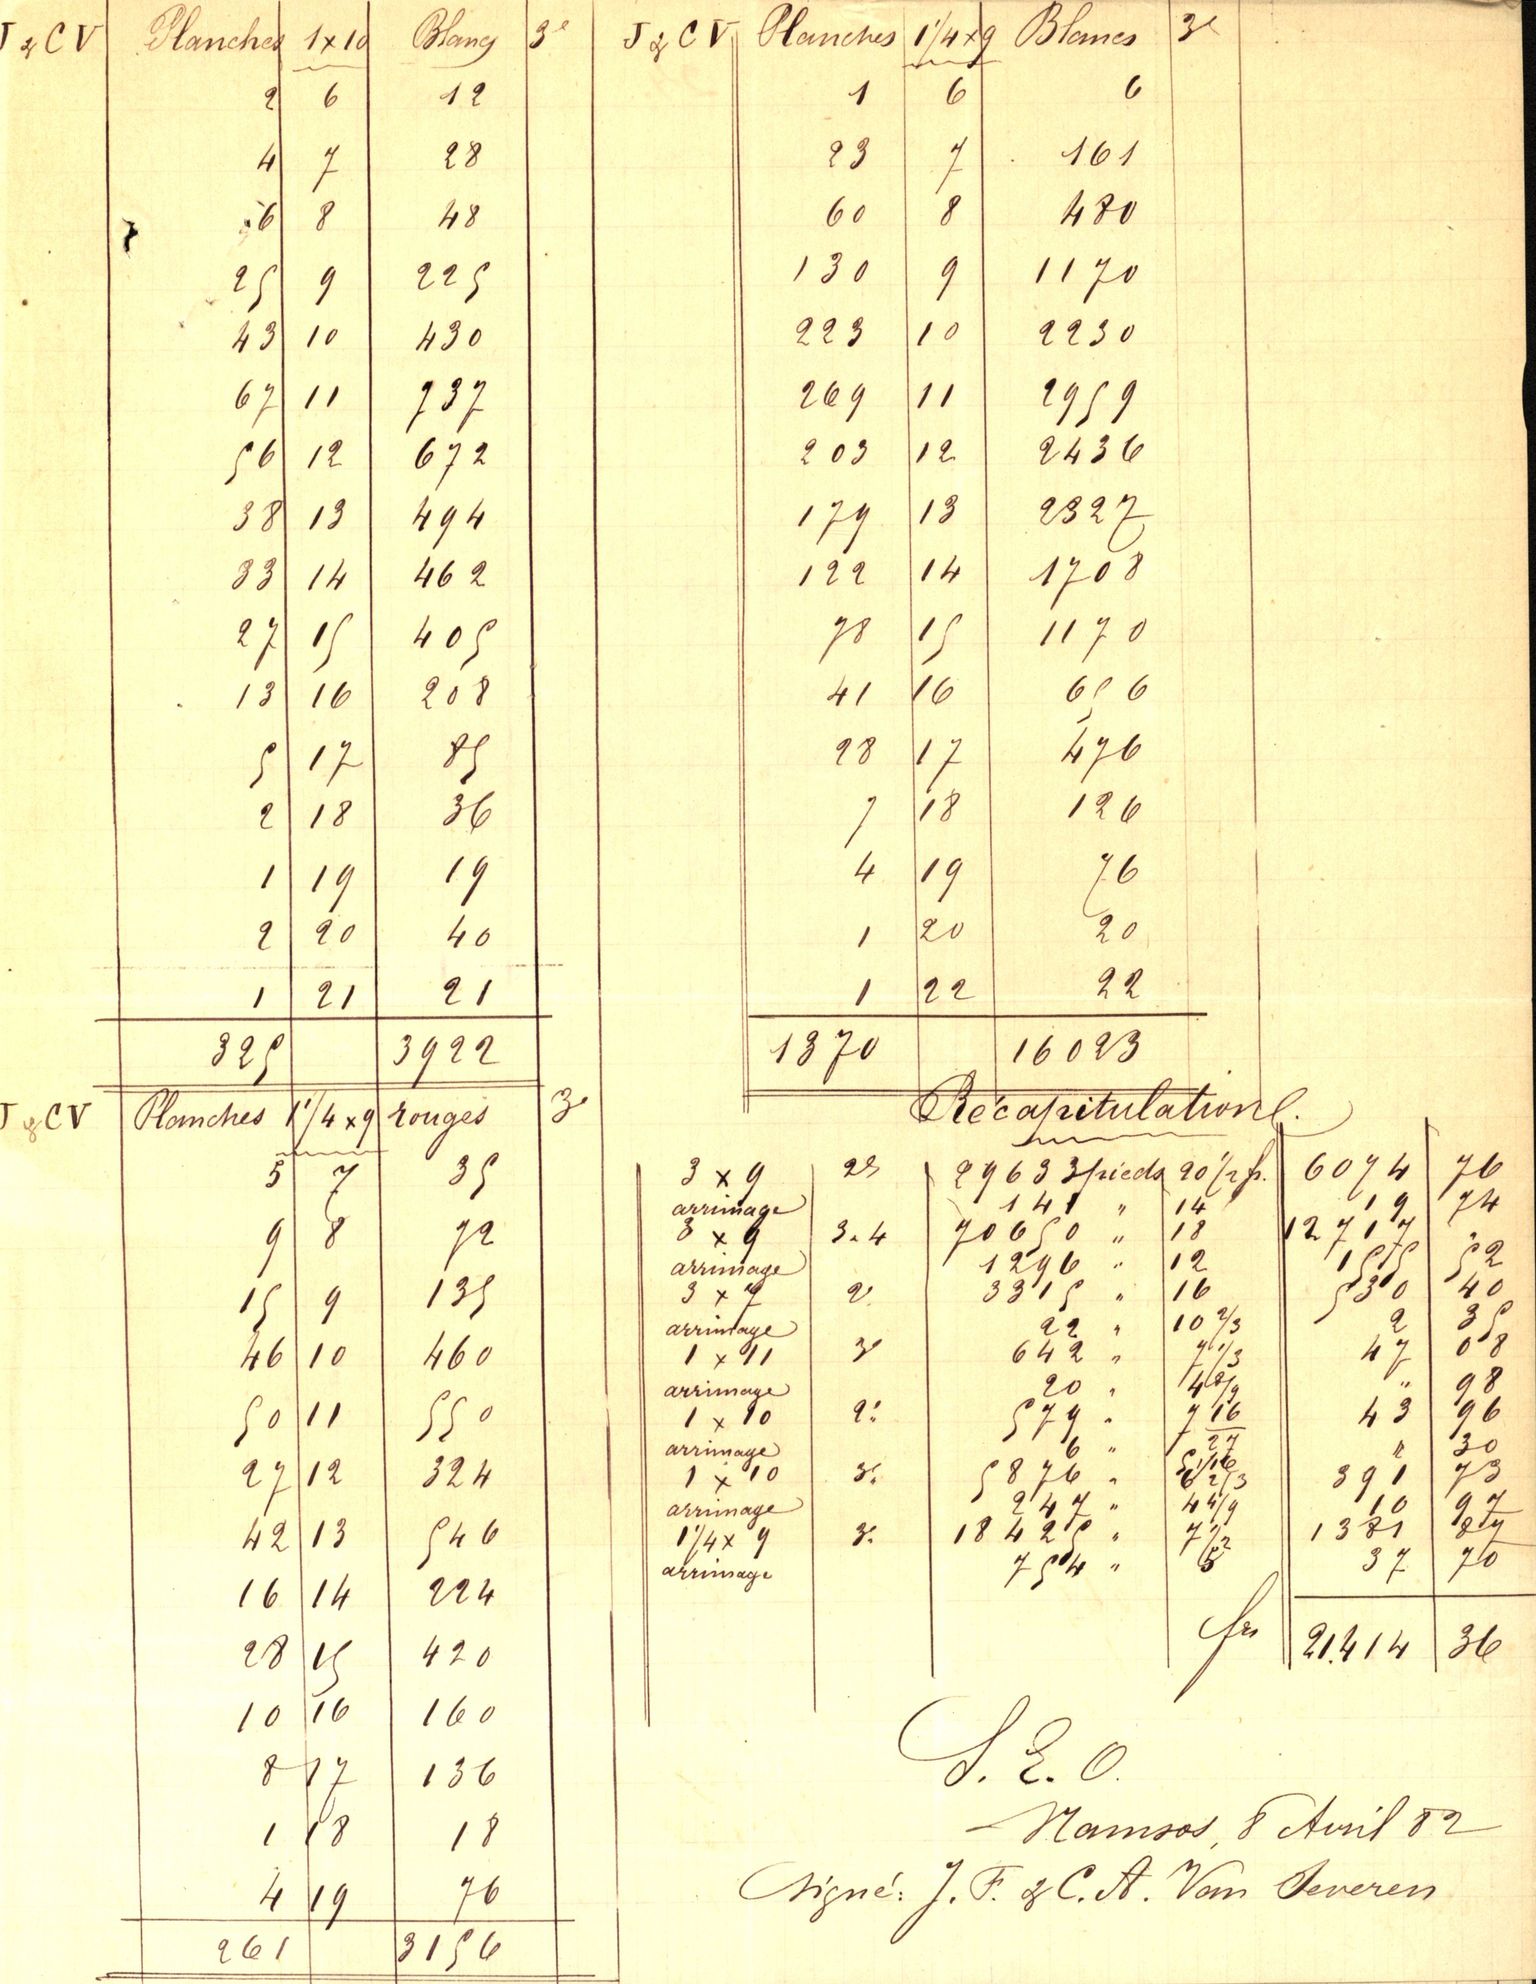 J & C V Planches 1 x 10 Blancs 3e
2 6 12
4 7 28
6 8 48
25 9 225
43 10 430
67 11 737
56 12 672
38 13 494
33 14 462
27 15 405
13 16 208
5 17 85
2 18 36
1 19 19
2 20 40
1 21 21
325 3922
J & C V Planches 1 1/4 x 9 rouges 3e
5 7 35
9 8 72
15 9 135
46 10 460
50 11 550
27 12 324
42 13 546
16 14 224
28 15 420
10 16 160
8 17 136
1 18 18
4 19 76
261 3156
J & C V Planches 1 1/4 x 9 Blancs 3e
1 6 6
23 7 161
60 8 480
130 9 1170
223 10 2230
269 11 2959
203 12 2436
179 13 2327
122 14 1708
78 15 1170
41 16 656
28 17 476
7 18 126
4 19 76
1 20 20
1 22 22
1370 16023
Récapitulation
3 x 9 2e 29633 pieds 20 1/2 fr. 6074 76
arrimage 141 " 14 19 74
3 x 9 3.4 70650 " 18 12717 "
arrimage 1296 " 12 155 52
3 x 7 2e 3315 " 16 530 40
arrimage 22 " 10 2/3 2 35
1 x 11 3e 642 " 7 1/3 47 08
arrimage 20 " 4 8/9 " 98
1 x 10 2e 579 " 7 16/27 43 96
arrimage 6 " 5 1/16 " 30
1 x 10 3e 5876 " 6 2/3 391 73
arrimage 247 " 4 4/9 10 97
1 1/4 x 9 3e 18425 " 7 1/2 1381 87
arrimage 754 " 5 37 70
frs 21.414 36
S. E. O.
Namsos, 8 Avril 82
Signé: J. F. & C. A. Van Severen